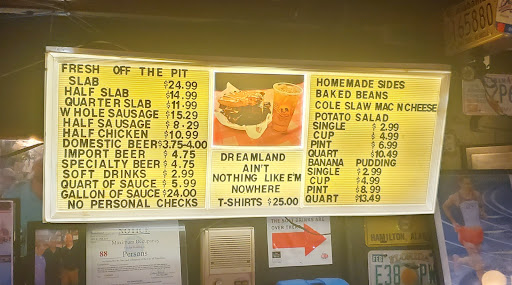 FRESH OFF THE PIT
SLAB $24.99
HALF SLAB $14.99
QUARTER SLAB $11.99
WHOLE SAUSAGE $15.29
HALF SAUSAGE $8.29
HALF CHICKEN $10.99
DOMESTIC BEER $3.75-4.00
IMPORT BEER $4.75
SPECIALTY BEER $4.75
SOFT DRINKS $2.99
QUART OF SAUCE $5.99
GALLON OF SAUCE $24.00
NO PERSONAL CHECKS
DREAMLAND
AIN'T
NOTHING LIKE E'M
NOWHERE
T-SHIRTS $25.00
HOMEMADE SIDES
BAKED BEANS
COLE SLAW MAC N CHEESE
POTATO SALAD
SINGLE $2.99
CUP $4.99
PINT $6.99
QUART $10.49
BANANA PUDDING
SINGLE $2.99
CUP $4.99
PINT $8.99
QUART $13.49
65880
NOTICE
88 Persons
HAMILTON, ALA